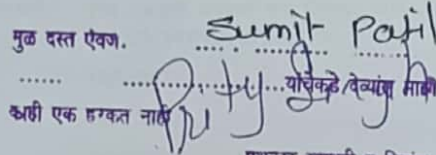 मुळ दस्त ऐवज. Sumit Patil
...... ................ यांचेकडे /देव्यांस माझी
काही एक हरकत नाही